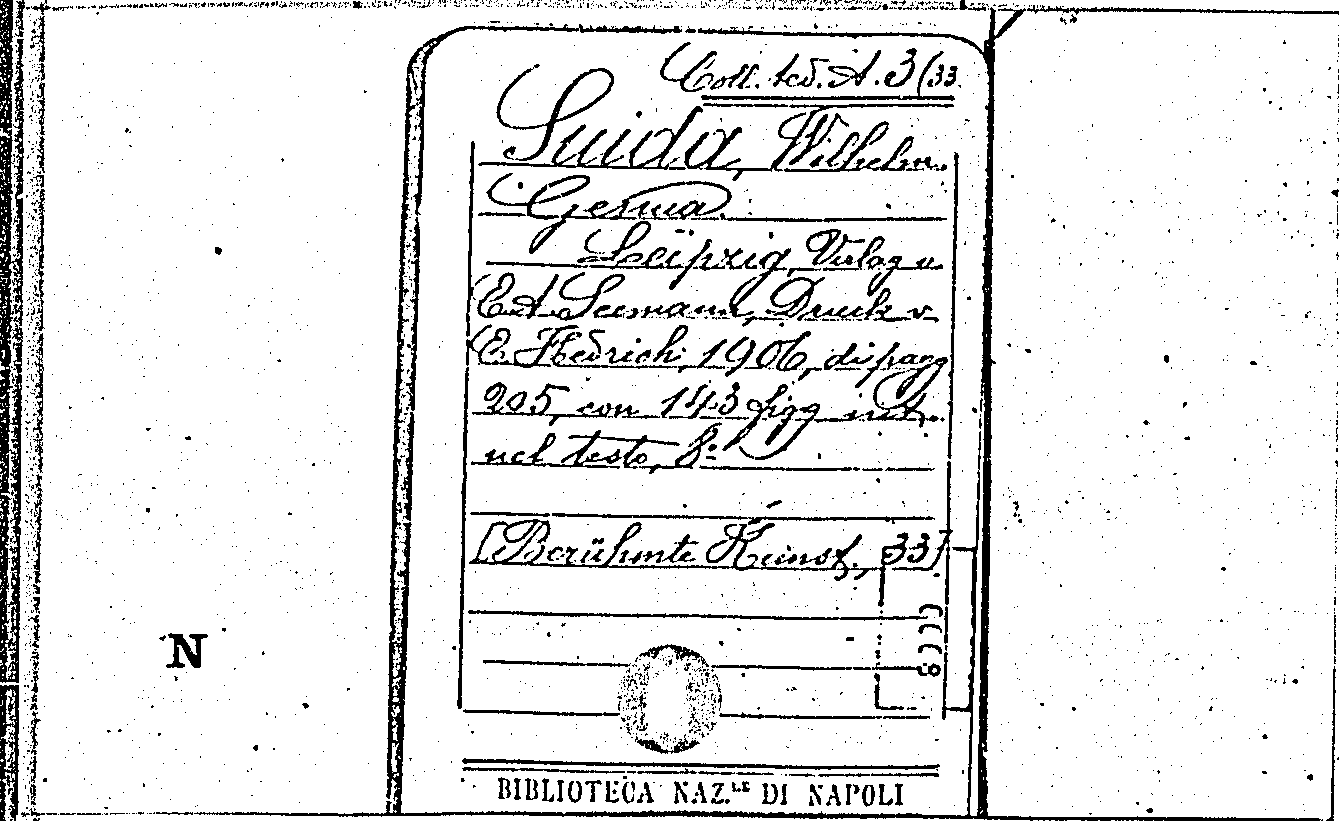 Coll. ted. A. 3(33
Suida, Wilhelm.
Genua.
Leipzig, Verlag v.
E. A. Seemann, Druck v.
E. Hedrich, 1906, di pagg
205, con 143 figg int.
nel testo, 8º
[Berühmte Kunst., 33]
N
BIBLIOTECA NAZ.LE DI NAPOLI